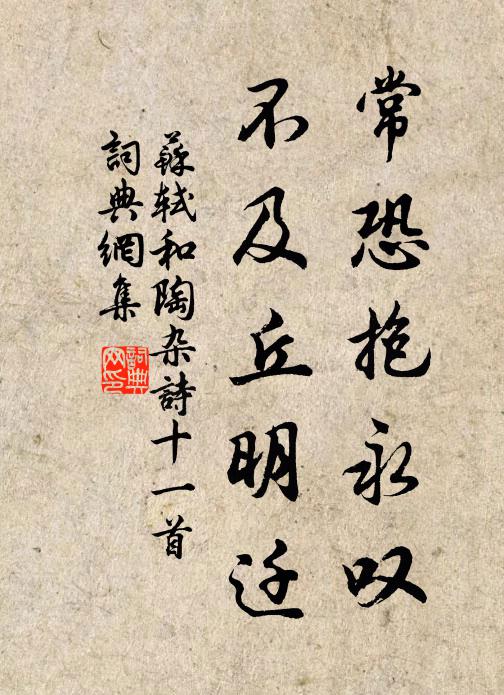 常恐抱永叹
不及丘明迁
蘇軾和陶杂詩十一首
詞典網集
詞典
网印